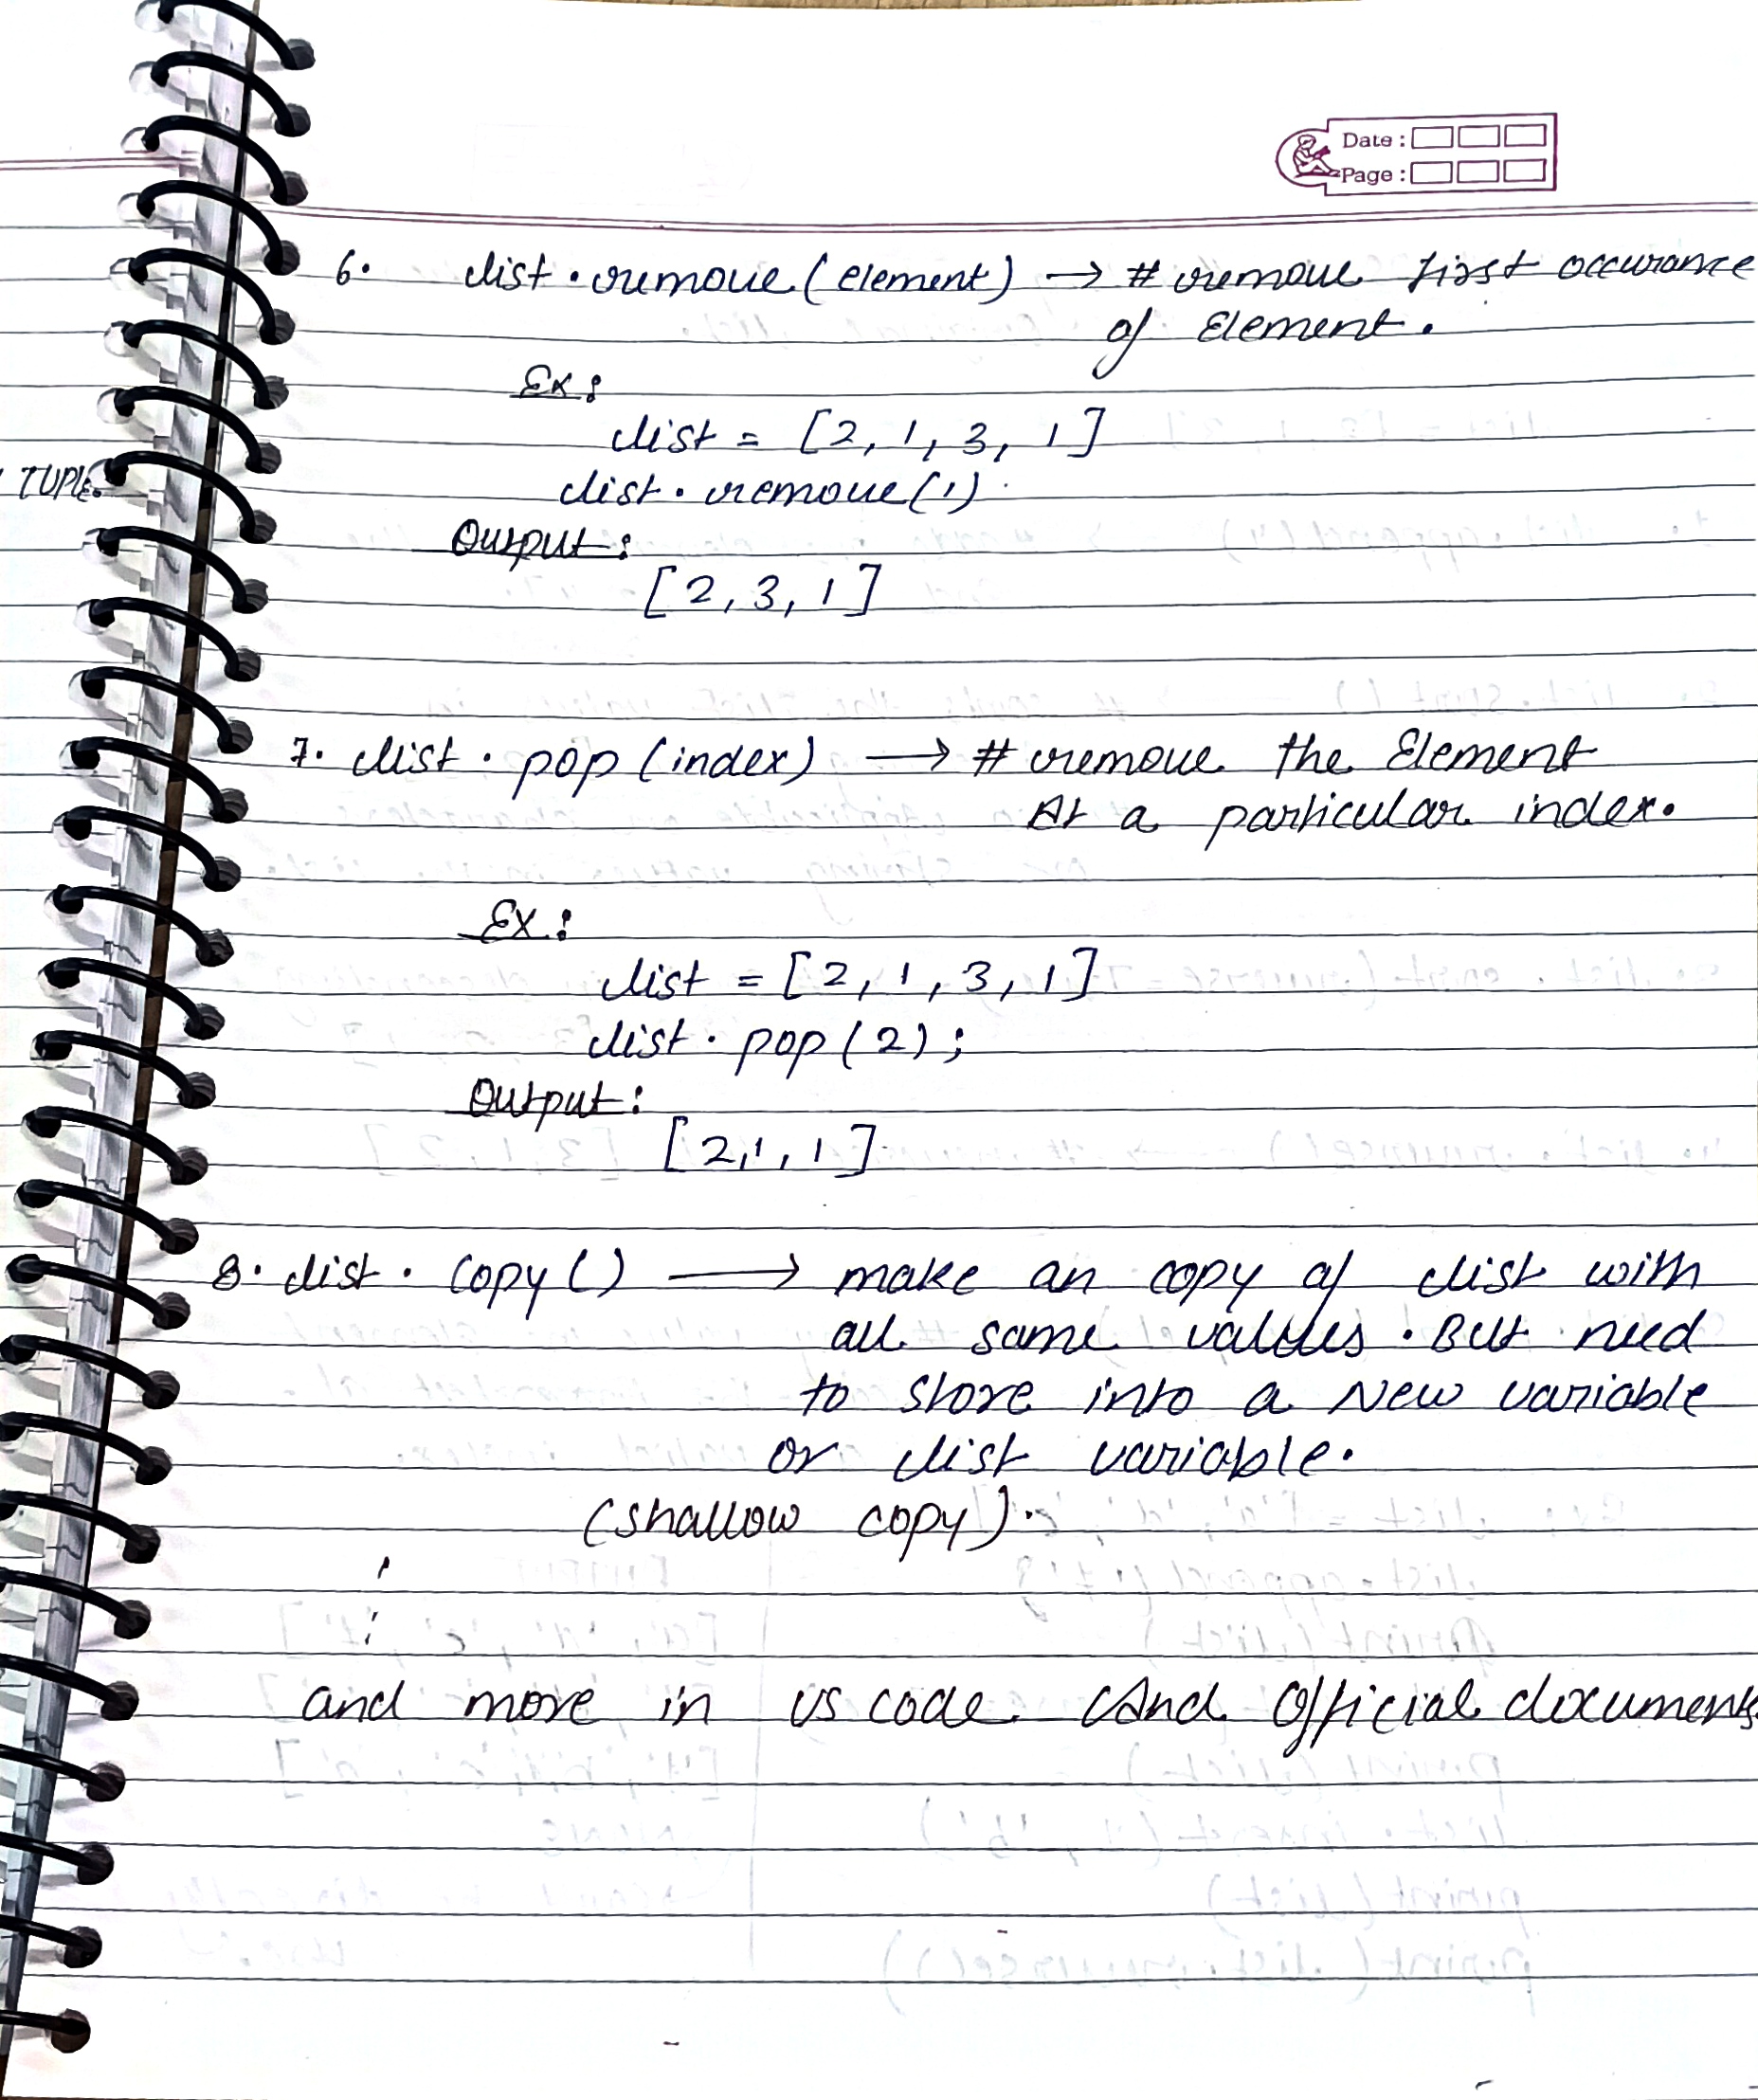 Date :
Page :
6. list . remove ( element ) → # remove first occurance
of Element .
Ex :
list = [ 2 , 1 , 3 , 1 ]
TUPLE.
list . remove ( 1 )
Output :
[ 2 , 3 , 1 ]
7. list . pop ( index ) → # remove the Element
At a particular index .
Ex :
list = [ 2 , 1 , 3 , 1 ]
list . pop ( 2 ) ;
Output :
[ 2 , 1 , 1 ]
8. list . copy ( ) → make an copy of list with
all same values . But need
to store into a New variable
or list variable .
( shallow copy ) .
and more in vs code And Official documents.